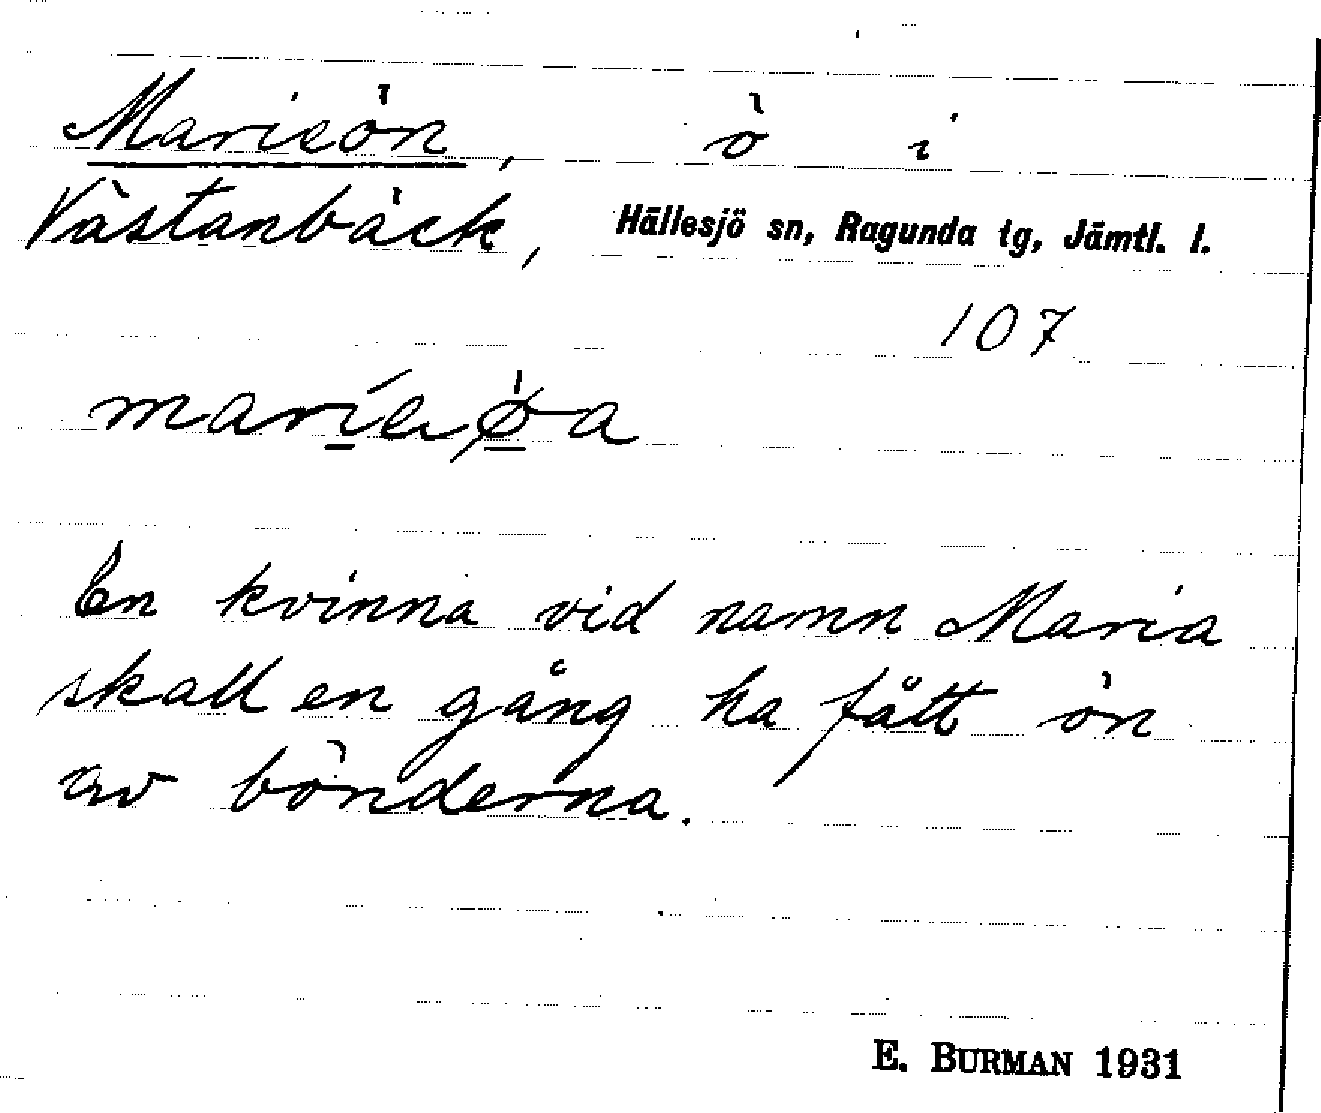 Marieön, ö i
Västanbäck, Hällesjö sn, Ragunda tg, Jämtl. l.
107
maríeøa
En kvinna vid namn Maria
skall en gång ha fått ön
av bönderna.
E. BURMAN 1931